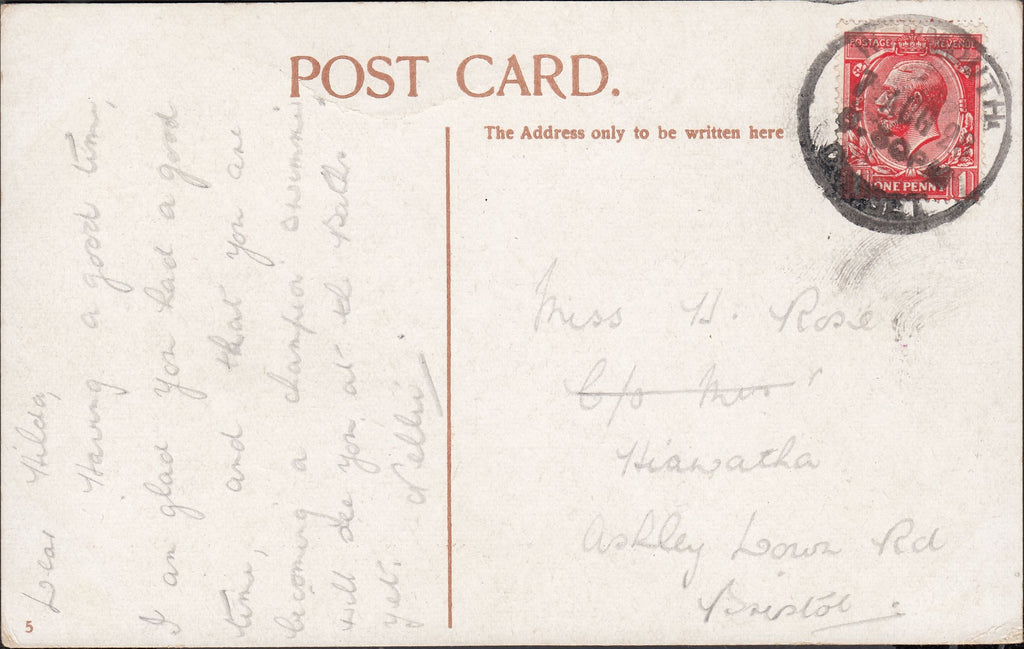 POST CARD.
The Address only to be written here
POSTAGE REVENUE
ONE PENNY
7 AUG
DORSET
Dear Hilda,
Having a good time,
I am glad you had a good
time, and that you are
becoming a champion swimmer
will see you at the Baths
yet. Nellie
Miss H. Rose
C/o Mrs
Hiawatha
Ashley Down Rd
Bristol
5